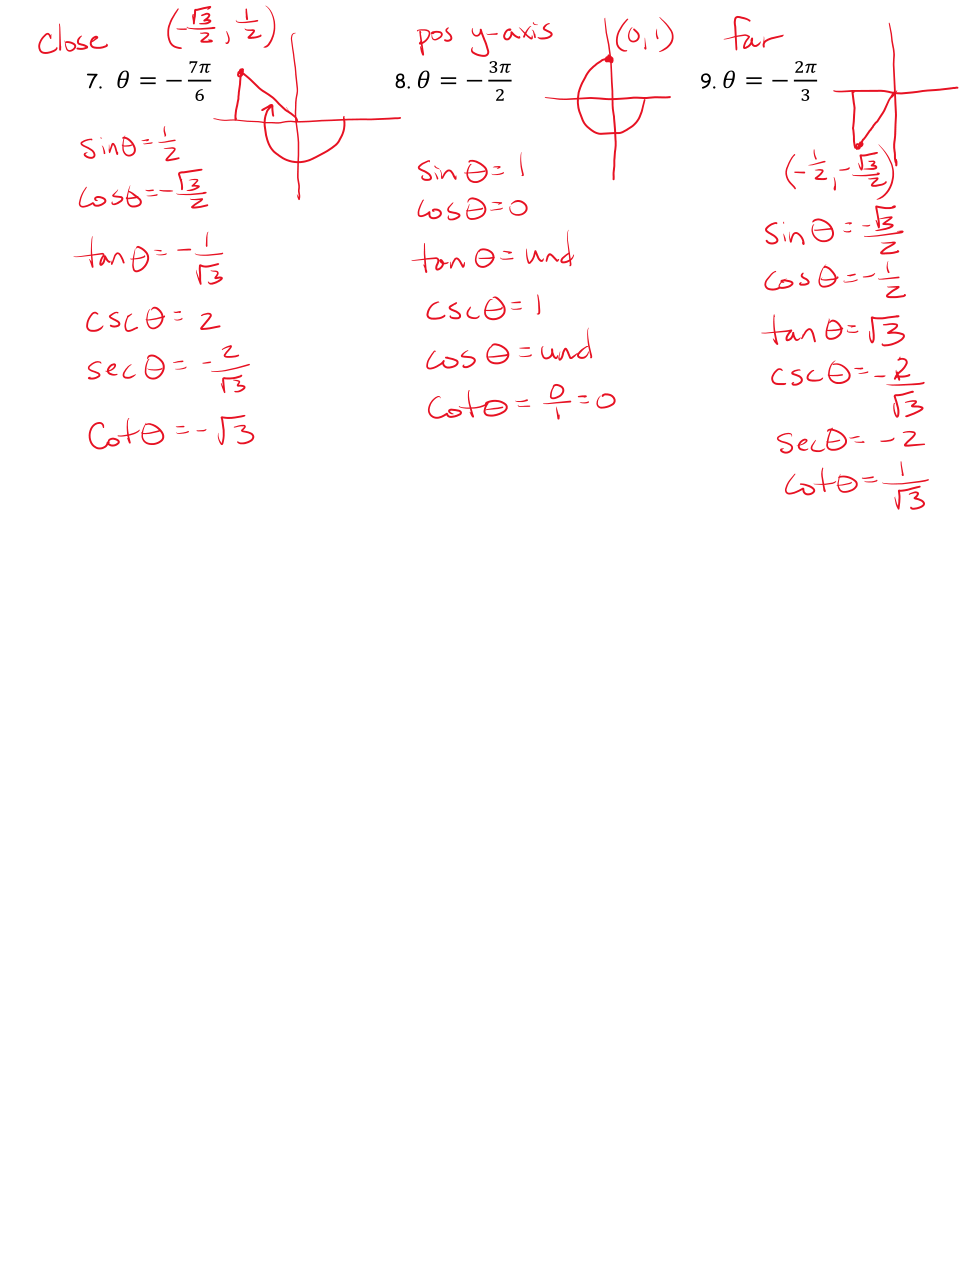 close (-√3/2, 1/2)
7. θ = −7π/6
sinθ=1/2
cosθ=-√3/2
tanθ=-1/√3
cscθ=2
secθ=-2/√3
cotθ=-√3
pos y-axis (0,1)
8. θ = −3π/2
sinθ=1
cosθ=0
tanθ=und
cscθ=1
cosθ=und
cotθ=0/1=0
far
9. θ = −2π/3
(-1/2, -√3/2)
sinθ=-√3/2
cosθ=-1/2
tanθ=√3
cscθ=-2/√3
secθ=-2
cotθ=1/√3